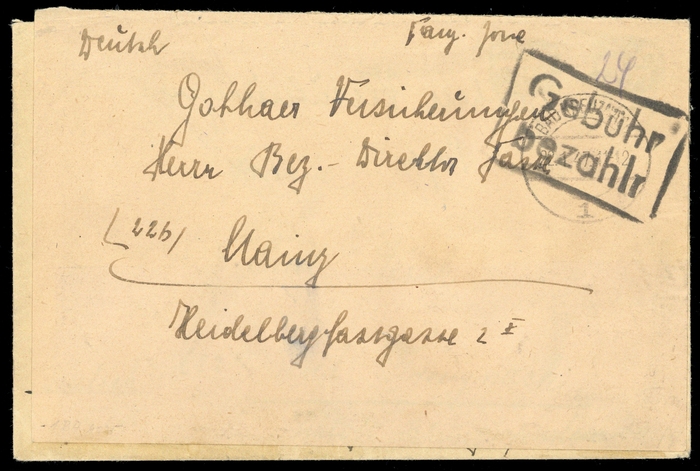 Deutsch Franz. Zone
24
Gebühr
bezahlt
Gothaer Versicherungen
Herrn Bez.-Direktor
(22b) Mainz
Heidelbergfassgasse 2 II
1